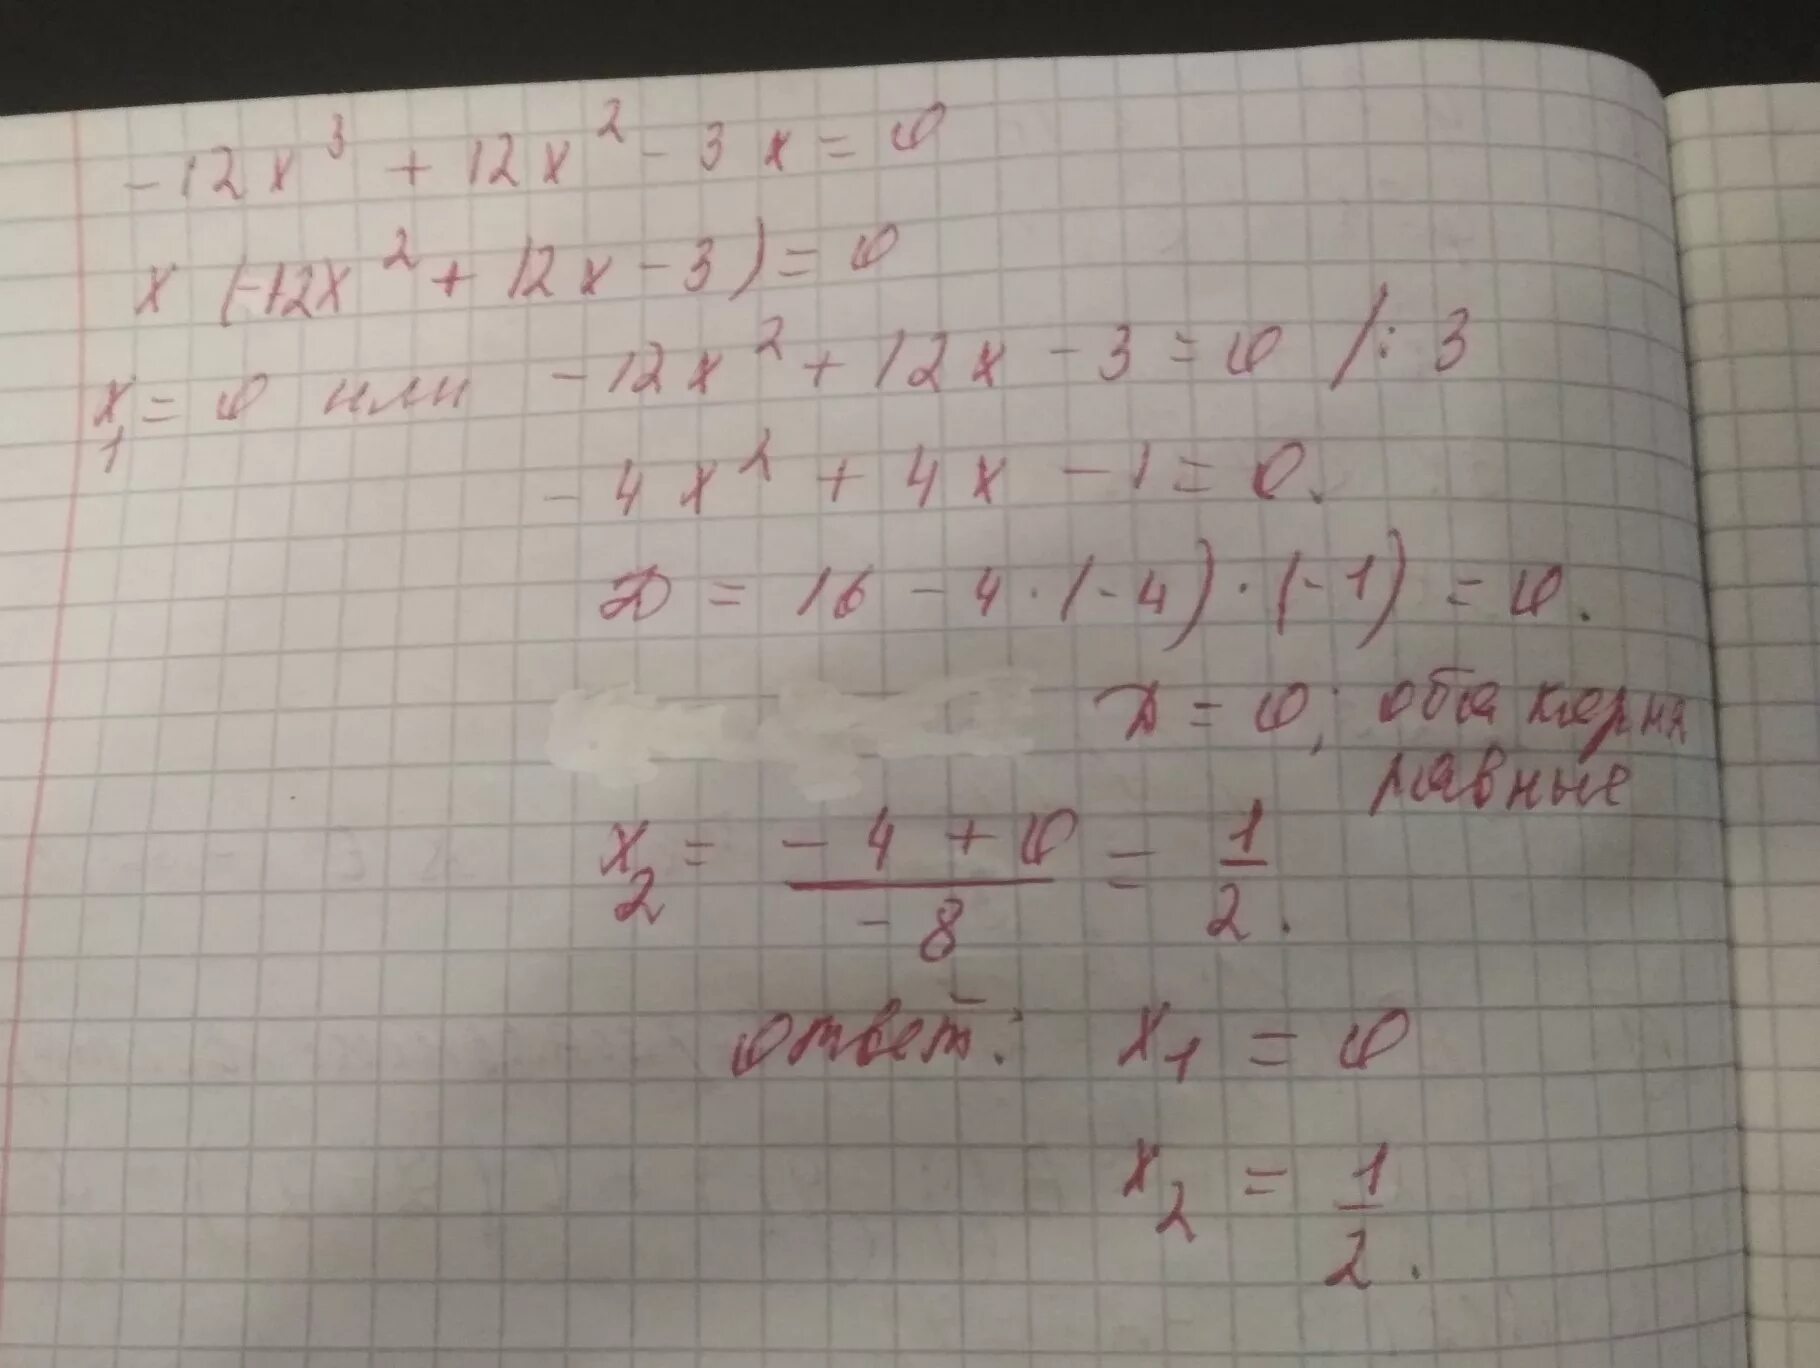 -12x³ + 12x² - 3x = 0
x (-12x² + 12x - 3) = 0
x₁ = 0 или -12x² + 12x - 3 = 0 /: 3
-4x² + 4x - 1 = 0.
D = 16 - 4 · (-4) · (-1) = 0.
D = 0; оба корня
равные
x₂ = (-4 + 0)/(-8) = 1/2.
ответ: x₁ = 0
x₂ = 1/2.